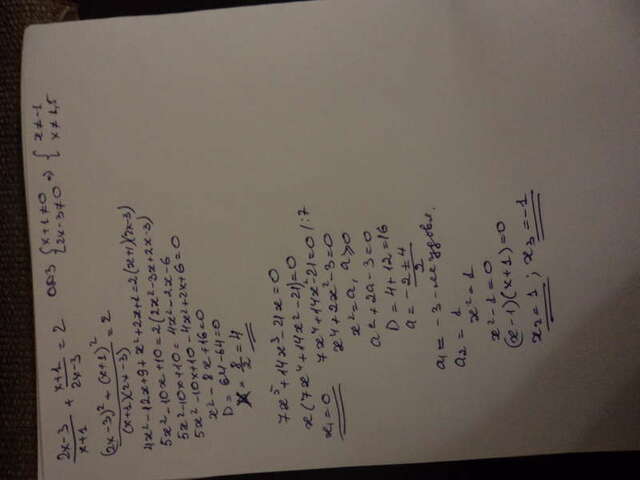 (2x-3)/(x+1) + (x+1)/(2x-3) = 2 ОДЗ { x+1≠0 2x-3≠0 => { x≠-1 x≠1,5
((2x-3)² + (x+1)²)/((x+1)(2x-3)) = 2
4x²-12x+9+x²+2x+1=2(x+1)(2x-3)
5x²-10x+10=2(2x²-3x+2x-3)
5x²-10x+10=4x²-2x-6
5x²-10x+10-4x²+2x+6=0
x²-8x+16=0
D=64-64=0
x=8/2=4
7x⁵+14x³-21x=0
x(7x⁴+14x²-21)=0
x₁=0
7x⁴+14x²-21=0 /:7
x⁴+2x²-3=0
x²=a, a≥0
a²+2a-3=0
D=4+12=16
a=(-2±4)/2
a₁=-3-не удовл.
a₂=1
x²=1
x²-1=0
(x-1)(x+1)=0
x₂=1; x₃=-1